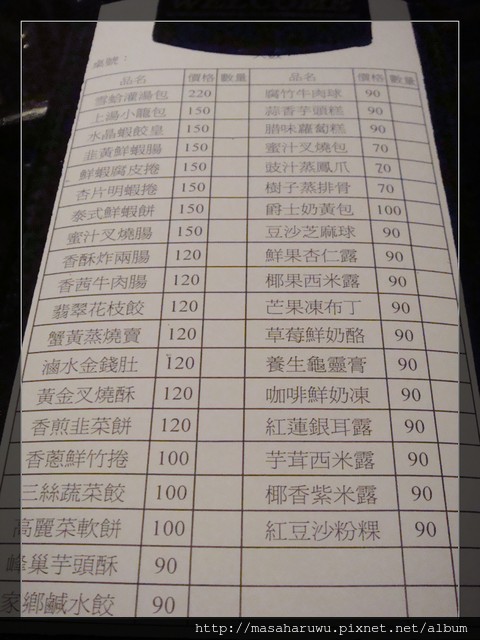 桌號：
品名 價格 數量 品名 價格 數量
雪蛤灌湯包 220 腐竹牛肉球 90
上湯小龍包 150 蒜香芋頭糕 90
水晶蝦餃皇 150 腊味蘿蔔糕 90
韭黃鮮蝦腸 150 蜜汁叉燒包 70
鮮蝦腐皮捲 150 豉汁蒸鳳爪 70
杏片明蝦捲 150 樹子蒸排骨 70
泰式鮮蝦餅 150 爵士奶黃包 100
蜜汁叉燒腸 150 豆沙芝麻球 90
香酥炸兩腸 120 鮮果杏仁露 90
香茜牛肉腸 120 椰果西米露 90
翡翠花枝餃 120 芒果凍布丁 90
蟹黃蒸燒賣 120 草莓鮮奶酪 90
滷水金錢肚 120 養生龜靈膏 90
黃金叉燒酥 120 咖啡鮮奶凍 90
香煎韭菜餅 120 紅蓮銀耳露 90
香蔥鮮竹捲 100 芋茸西米露 90
三絲蔬菜餃 100 椰香紫米露 90
高麗菜軟餅 100 紅豆沙粉粿 90
蜂巢芋頭酥 90
家鄉鹹水餃 90
http://masaharuwu.pixnet.net/album